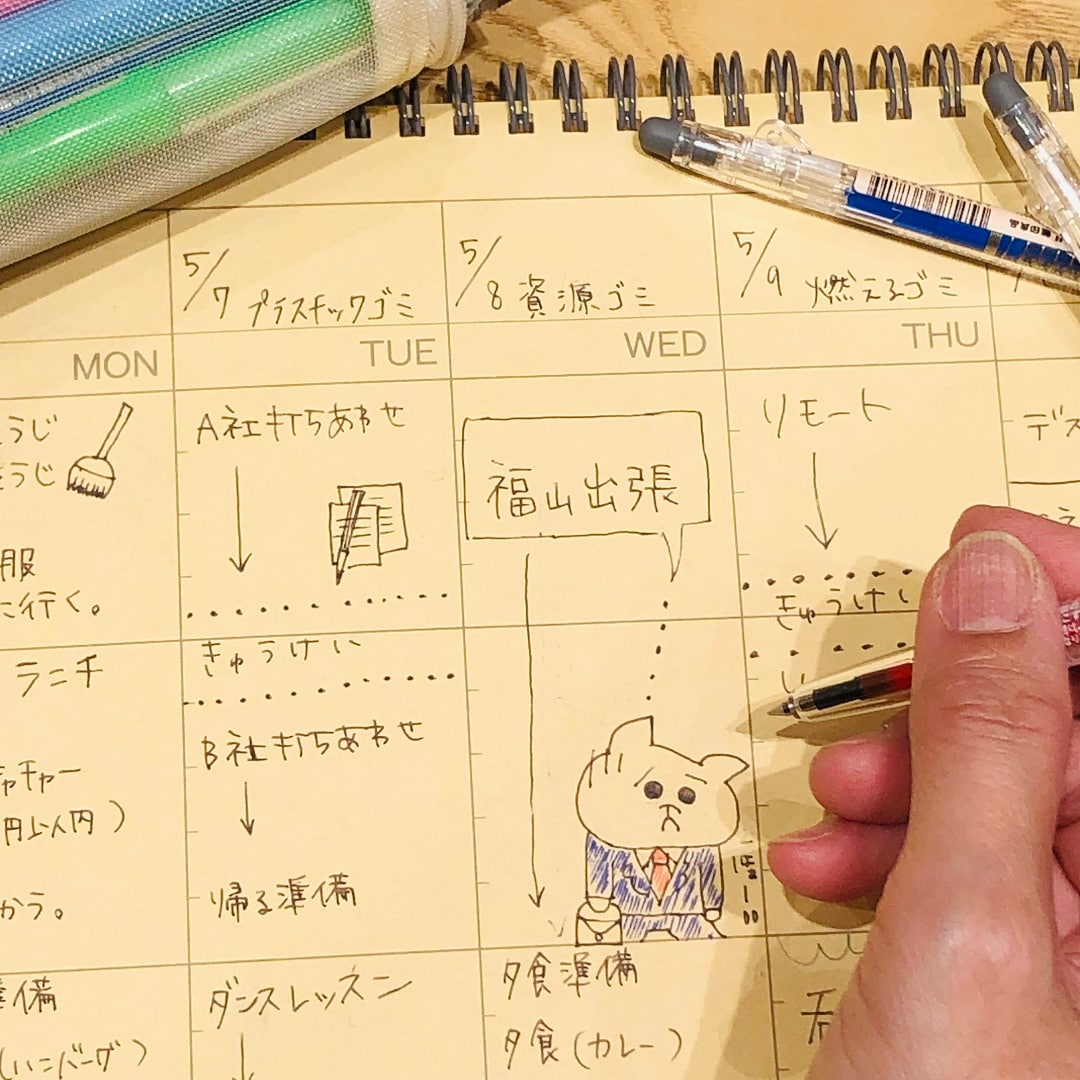 5/7 プラスチックゴミ
5/8 資源ゴミ
5/9 燃えるゴミ
MON
TUE
WED
THU
うじ
うじ
服
に行く。
ランチ
チャー
円以内)
かう。
備
(ハンバーグ)
A社打ちあわせ
きゅうけい
B社打ちあわせ
帰る準備
ダンスレッスン
福山出張
夕食準備
夕食(カレー)
リモート
きゅうけい
デス